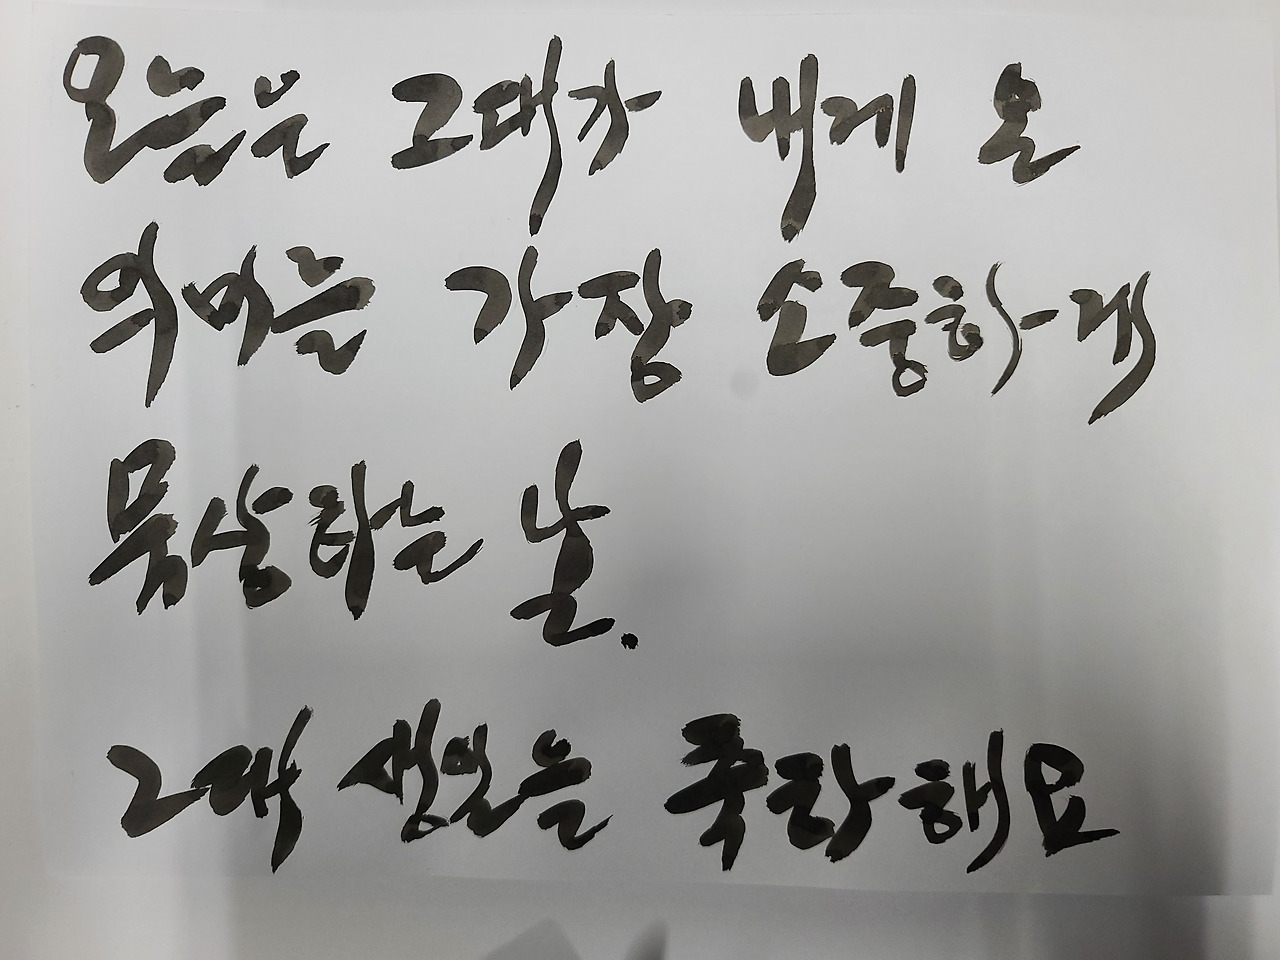 오늘은 그대가 내게 온
의미는 가장 소중하게
묵상하는 날.
그대 생일을 축하해요